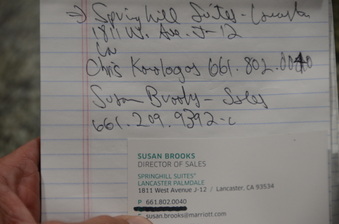 → Springhill Suites - Lancaster
1811 W. Ave. J-12
Chris 661.802.0040
Susan Brooks - Sales
661.209.9392-c
SUSAN BROOKS
DIRECTOR OF SALES
SPRINGHILL SUITES®
LANCASTER PALMDALE
1811 West Avenue J-12 / Lancaster, CA 93534
P 661.802.0040
susan.brooks@marriott.com